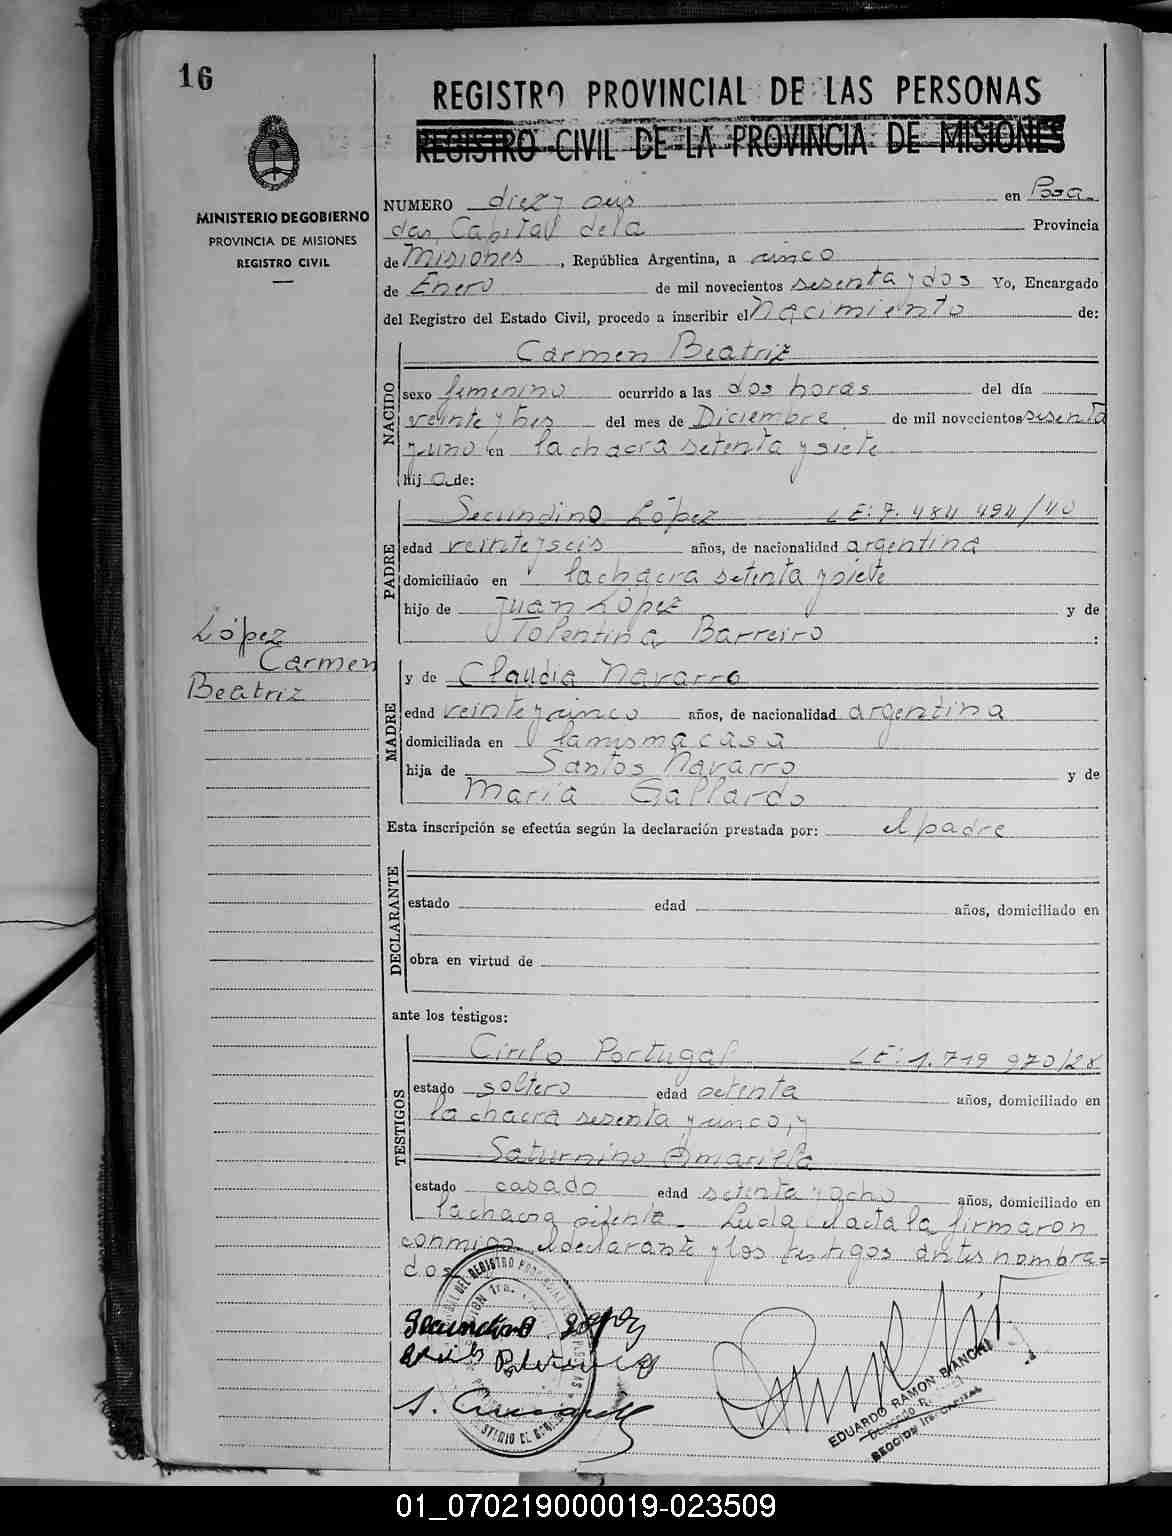 16
REGISTRO PROVINCIAL DE LAS PERSONAS
REGISTRO CIVIL DE LA PROVINCIA DE MISIONES
MINISTERIO DE GOBIERNO
PROVINCIA DE MISIONES
REGISTRO CIVIL
NUMERO diez y seis en Posa
das, Capital de la Provincia
de Misiones, República Argentina, a cinco
de Enero de mil novecientos sesenta y dos Yo, Encargado
del Registro del Estado Civil, procedo a inscribir el Nacimiento de:
NACIDO
Carmen Beatriz
sexo femenino ocurrido a las dos horas del día
veinte y tres del mes de Diciembre de mil novecientos sesenta
y uno en la chacra setenta y siete
hija de:
PADRE
Secundino López LE: 7.484 494/40
edad veinte y seis años, de nacionalidad argentina
domiciliado en la chacra setenta y siete
hijo de Juan López y de
Tolentina Barreiro :
López
Carmen
Beatriz
MADRE
y de Claudia Navarro
edad veinte y cinco años, de nacionalidad argentina
domiciliada en la misma casa
hija de Santos Navarro y de
María Gallardo
Esta inscripción se efectúa según la declaración prestada por: el padre
DECLARANTE
estado edad años, domiciliado en
obra en virtud de
ante los testigos:
TESTIGOS
Cirilo Portugal LE: 1.719 970/28
estado soltero edad años, domiciliado en
la chacra sesenta y uno, y
Saturnino Amarilla
estado casado edad setenta y ocho años, domiciliado en
la chacra setenta. Leída el acta la firmaron
conmigo el declarante y los testigos antes nombra=
dos
Secundino López
S.
EDUARDO RAMON BIANCHI
SECCION 1ra. CAPITAL
01_070219000019-023509